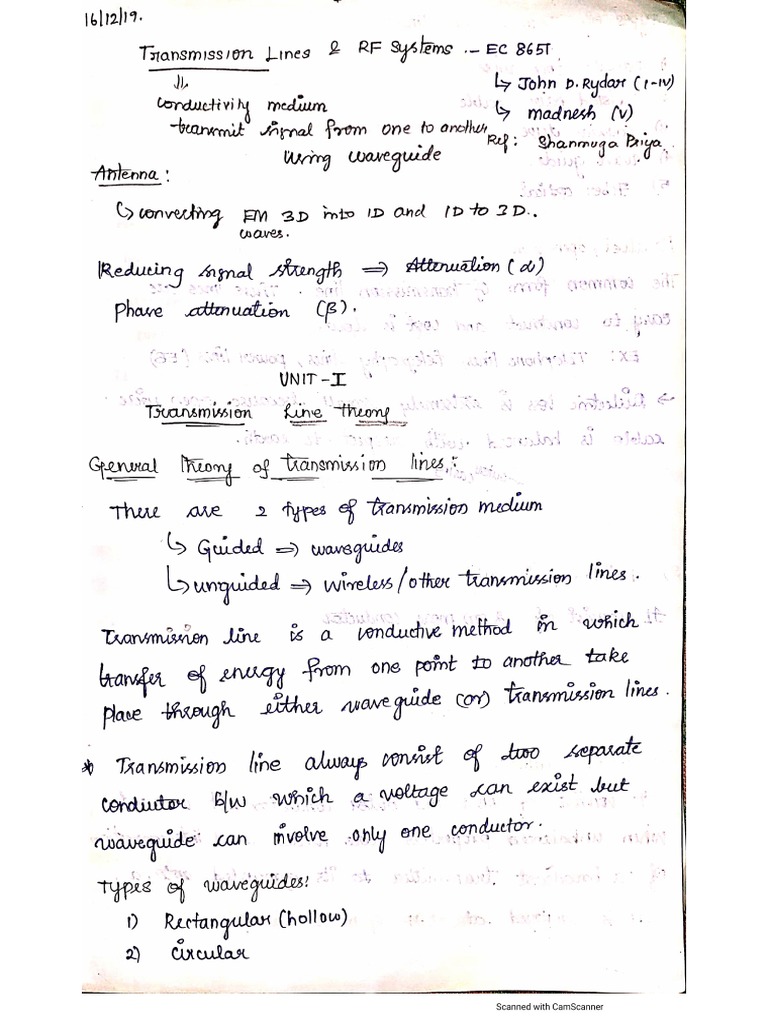 16/12/19.
Transmission Lines & RF Systems. - EC 8651
⇓
↳ John D. Rydar (I-IV)
conductivity medium
↳ madnesh (V)
transmit signal from one to another
Ref: Shanmuga Priya
using waveguide
Antenna:
↳ converting EM 3D into 1D and 1D to 3D..
waves.
Reducing signal strength ⇒ Attenuation (α)
Phave attenuation (β).
UNIT-I
Transmission Line theory
General Theory of transmission lines.:
There are 2 types of transmission medium
↳ Guided ⇒ waveguides
↳ unguided ⇒ wireless/other transmission lines.
Transmission line is a conductive method in which
transfer of energy from one point to another take
place through either waveguide (or) transmission lines.
* Transmission line always consist of two separate
conductor b/w which a voltage can exist but
waveguide can involve only one conductor.
Types of waveguides:
1) Rectangular (hollow)
2) Circular
Scanned with CamScanner